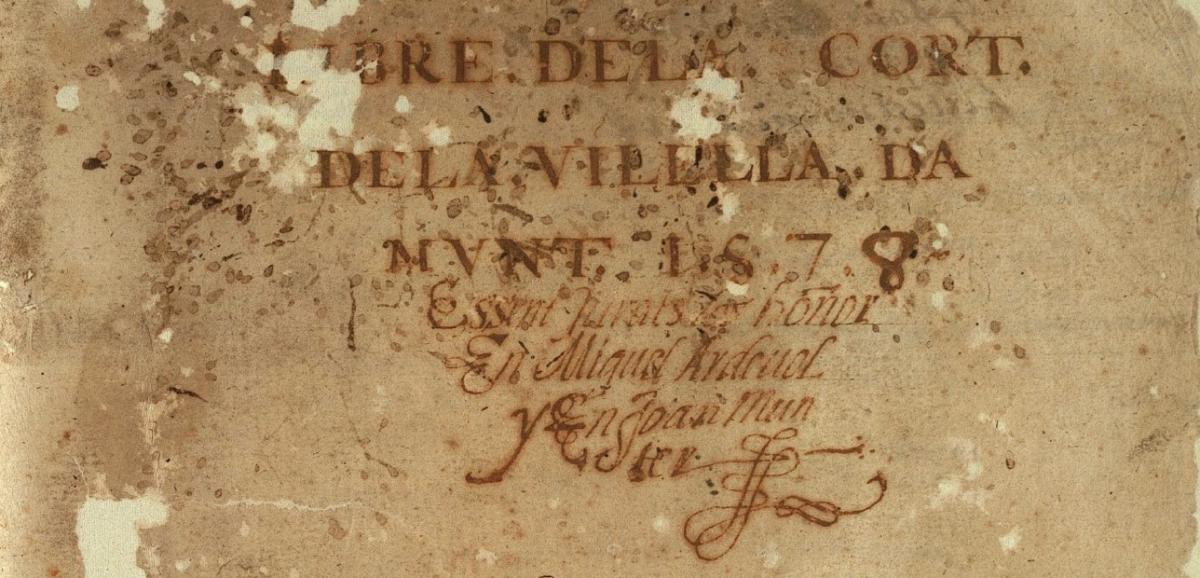 LIBRE. DELA. CORT.
DELA. VILELLA. DA
MVNT. 1.5.7.8
Essent Jurats los hoñor
En Miquel Ardeuol
y En Joan Mun
ter